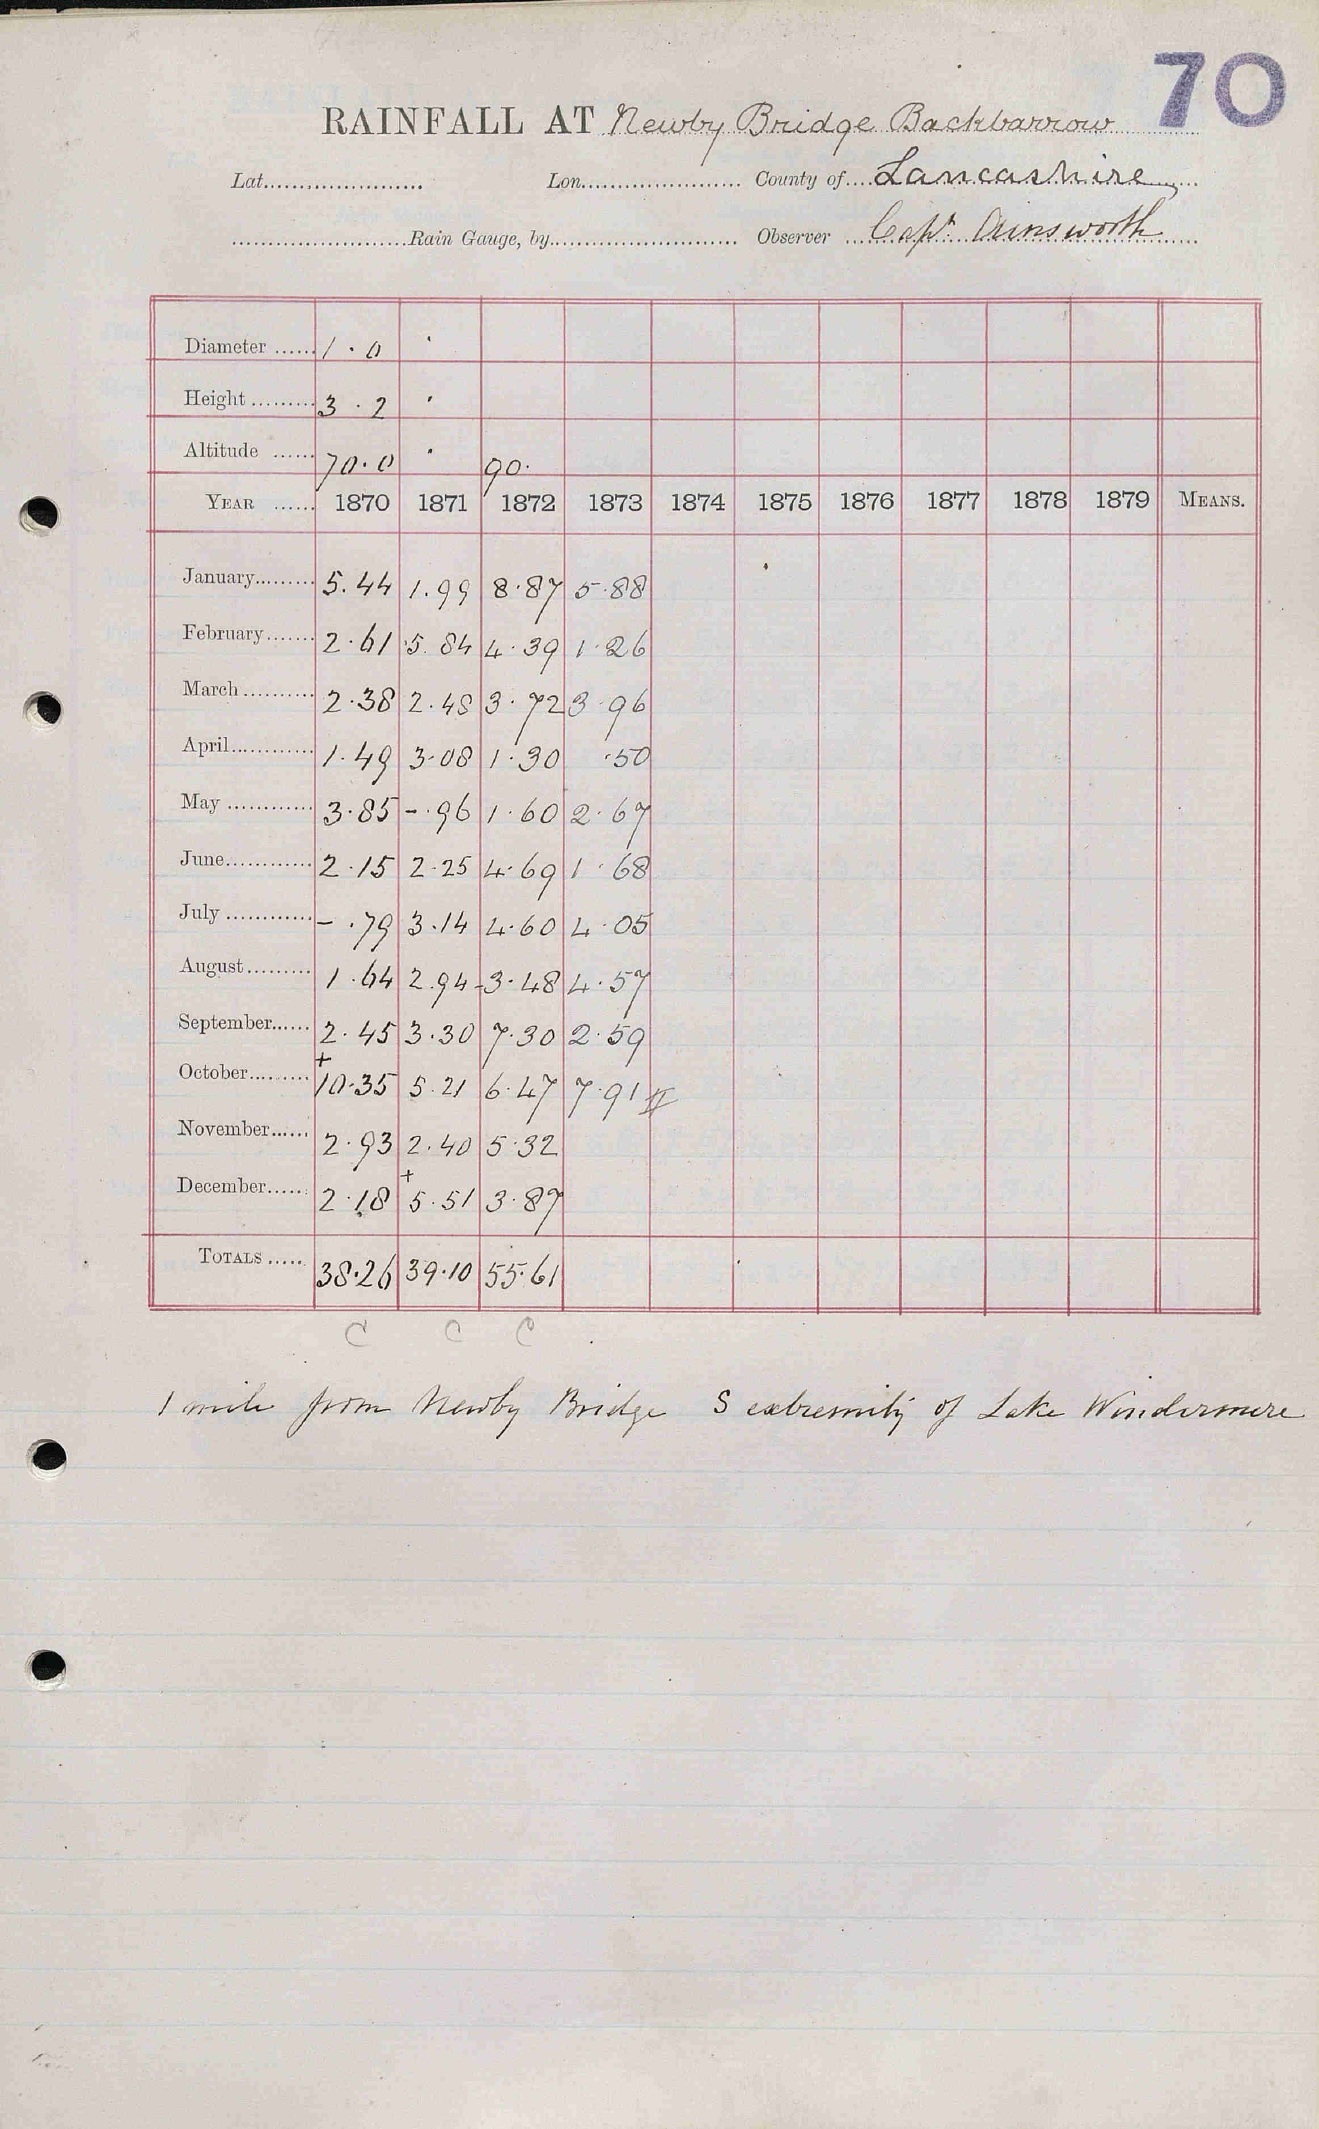 70
RAINFALL AT Newby Bridge Backbarrow
Lat...................... Lon...................... County of....Lancashire
........................Rain Gauge, by.......................... Observer ...Capt. Ainsworth
Diameter ...... 1.0 '
Height ......... 3.2 '
Altitude ...... 70.0 ' 90.
YEAR ...... 1870 1871 1872 1873 1874 1875 1876 1877 1878 1879 MEANS.
January......... 5.44 1.99 8.87 5.88
February....... 2.61 5.84 4.39 1.26
March.......... 2.38 2.48 3.72 3.96
April............ 1.49 3.08 1.30 .50
May ............ 3.85 -.96 1.60 2.67
June............ 2.15 2.25 4.69 1.68
July ............ -.79 3.14 4.60 4.05
August......... 1.64 2.94 3.48 4.57
September...... 2.45 3.30 7.30 2.59
October......... +10.35 5.21 6.47 7.91 II
November...... 2.93 2.40 5.32
December...... 2.18 +5.51 3.87
TOTALS ..... 38.26 39.10 55.61
C C C
1 mile from Newby Bridge S extremity of Lake Windermere